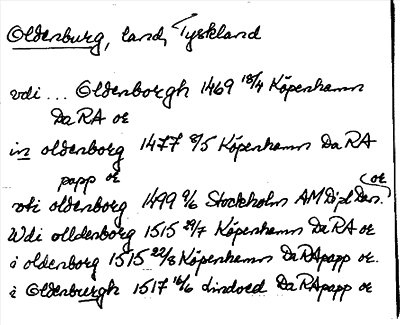 Oldenburg, land, Tyskland
vdi ... Oldenborgh 1469 18/4 Köpenhamn
DaRA or
in oldenborg 1477 8/5 Köpenhamn DaRA
papp or
vti oldenborg 1499 9/6 Stockholm AM Dipl Dan. or
Wdi olldenborg 1515 29/7 Köpenhamn DaRA or
i oldenborg 1515 22/8 Köpenhamn DaRApapp or.
i Oldenburgh 1517 16/6 Lindoed DaRApapp or